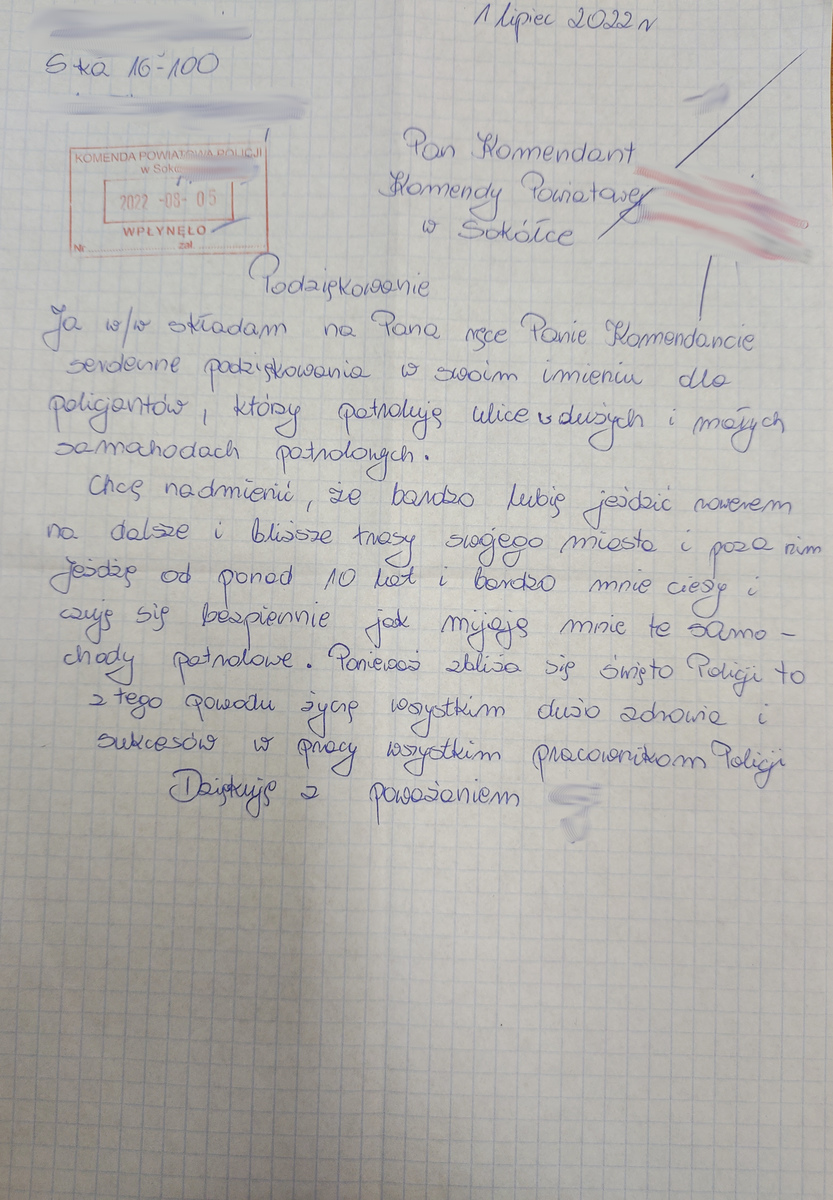 1 lipiec 2022 r
Ska 16-100
KOMENDA POWIATOWA POLICJI
w Sokó
2022 -08- 05
WPŁYNĘŁO
Nr zał.
Pan Komendant
Komendy Powiatowej
w Sokółce
Podziękowanie
Ja w/w składam na Pana ręce Panie Komendancie
serdeczne podziękowania w swoim imieniu dla
policjantów, którzy patrolują ulice w dużych i małych
samochodach patrolowych.
Chcę nadmienić, że bardzo lubię jeździć rowerem
na dalsze i bliższe trasy swojego miasta i poza nim
Jeżdżę od ponad 10 lat i bardzo mnie cieszy i
czuję się bezpiecznie jak mijają mnie te samo-
chody patrolowe. Ponieważ zbliża się święto Policji to
z tego powodu życzę wszystkim dużo zdrowia i
sukcesów w pracy wszystkim pracownikom Policji
Dziękuję z poważaniem